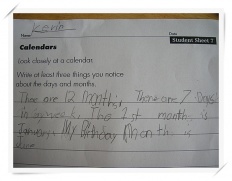 Kevin
Name Date
Student Sheet 7
Calendars
Look closely at a calendar.
Write at least three things you notice
about the days and months.
There are 12 months, There are 7 Days
in a week. The 1st month is
January. My Birthday Month is
June